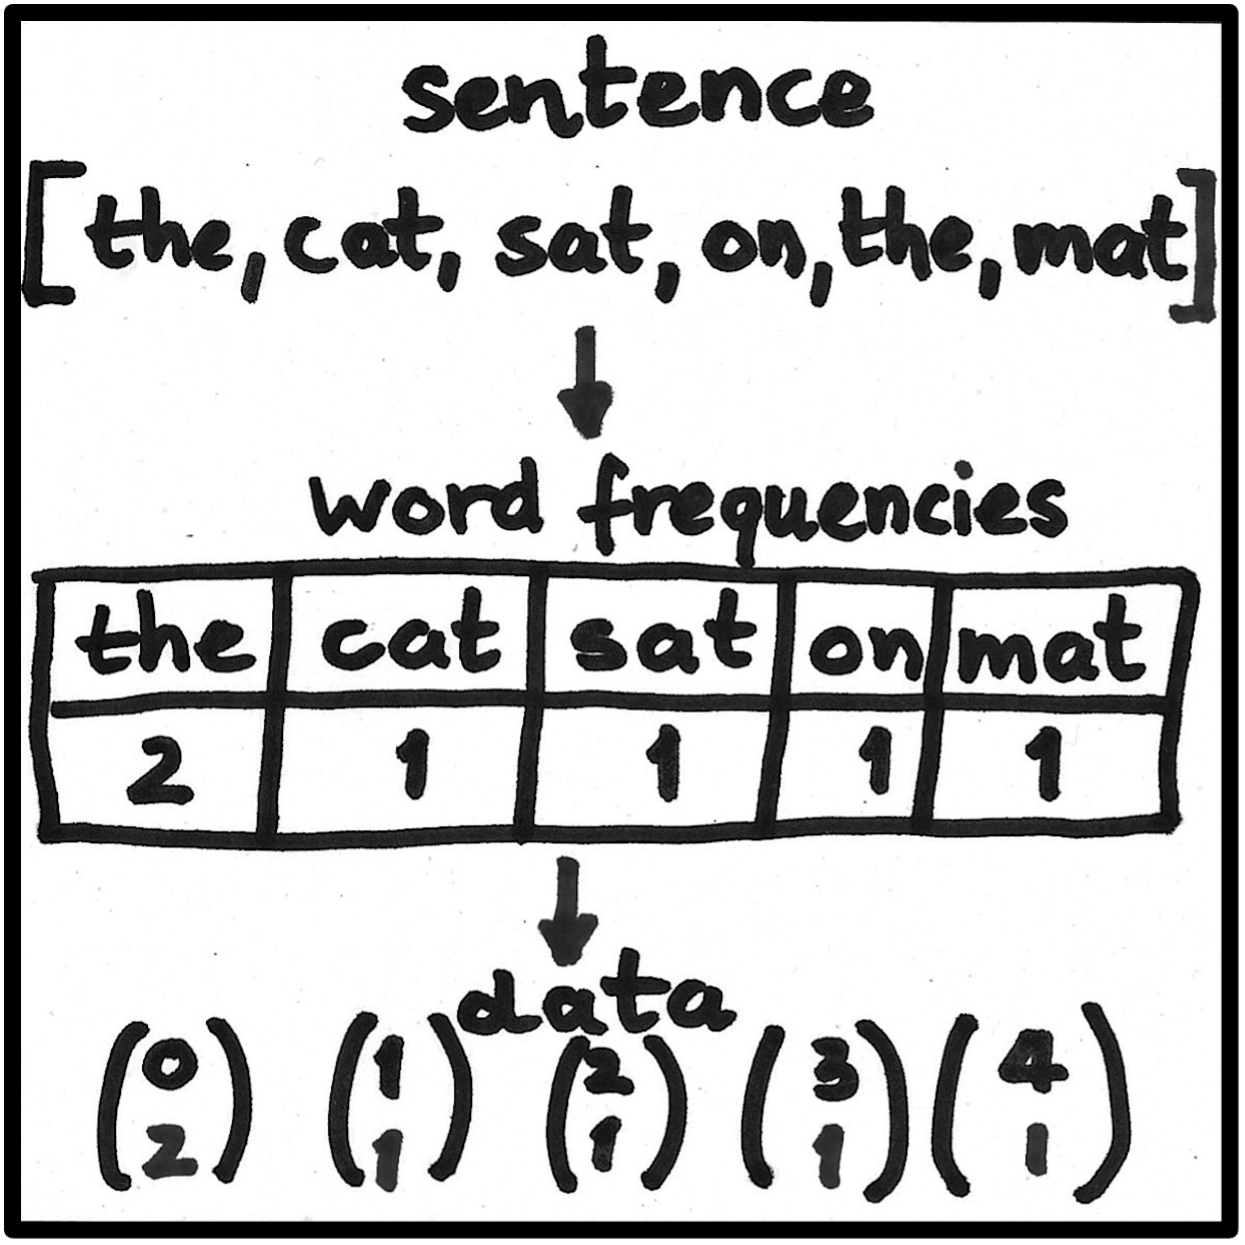 sentence
[the, cat, sat, on, the, mat]
word frequencies
the cat sat on mat
2 1 1 1 1
data
(0 (1 (2 (3 (4
2) 1) 1) 1) 1)